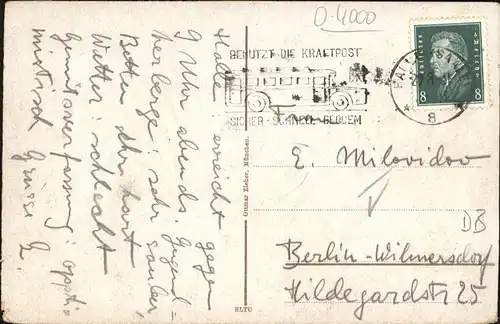 D-4000
BENUTZT DIE KRAFTPOST
SICHER · SCHNELL · BEQUEM
HALLE
8
DEUTSCHES REICH
8 8
Halle erreicht gegen
9 Uhr abends. Jugend=
herberge: sehr sauber,
Betten: sehr hart
Wetter: schlecht
Gemütsverfassung: opti=
mistisch Grüsse
Ottmar Zieher, München.
ELTU
E. Milovidov
DB
Berlin-Wilmersdorf
Hildegardstr 25